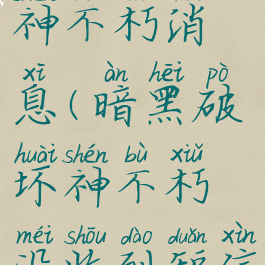 神不朽消
xī àn hēi pò
息(暗黑破
huài shén bù xiǔ
坏神不朽
méi shōu dào duǎn xìn
没收到短信